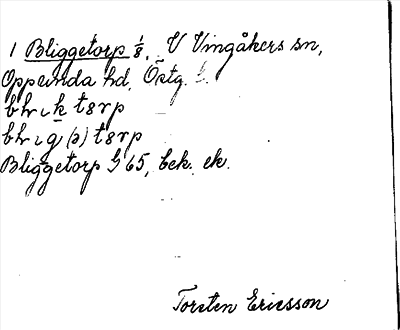 1 Bliggetorp 1/8, V Vingåkers sn,
Oppunda hd, Östg. l.
blıkt8rp
blıg(ə)t8rp
Bliggetorp G 65, bek. ek.
Torsten Ericsson